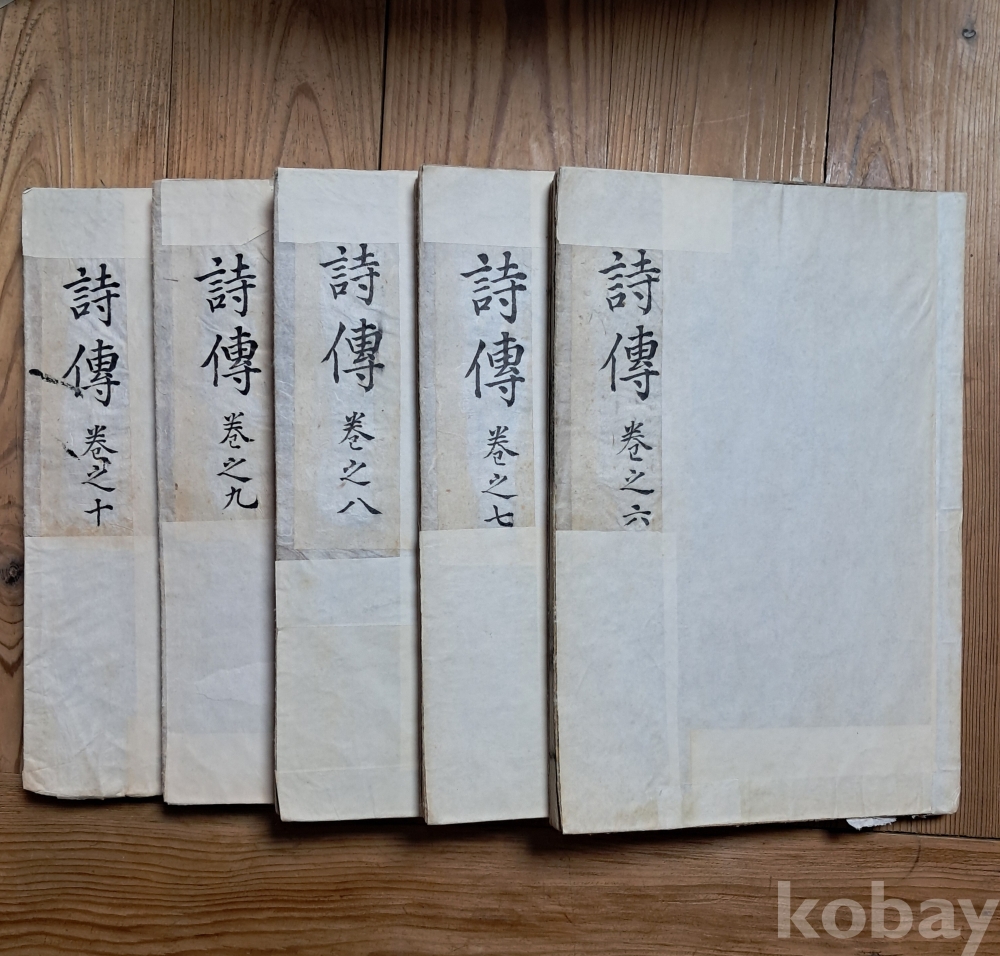 詩傳 卷之六
詩傳 卷之七
詩傳 卷之八
詩傳 卷之九
詩傳 卷之十
kobay